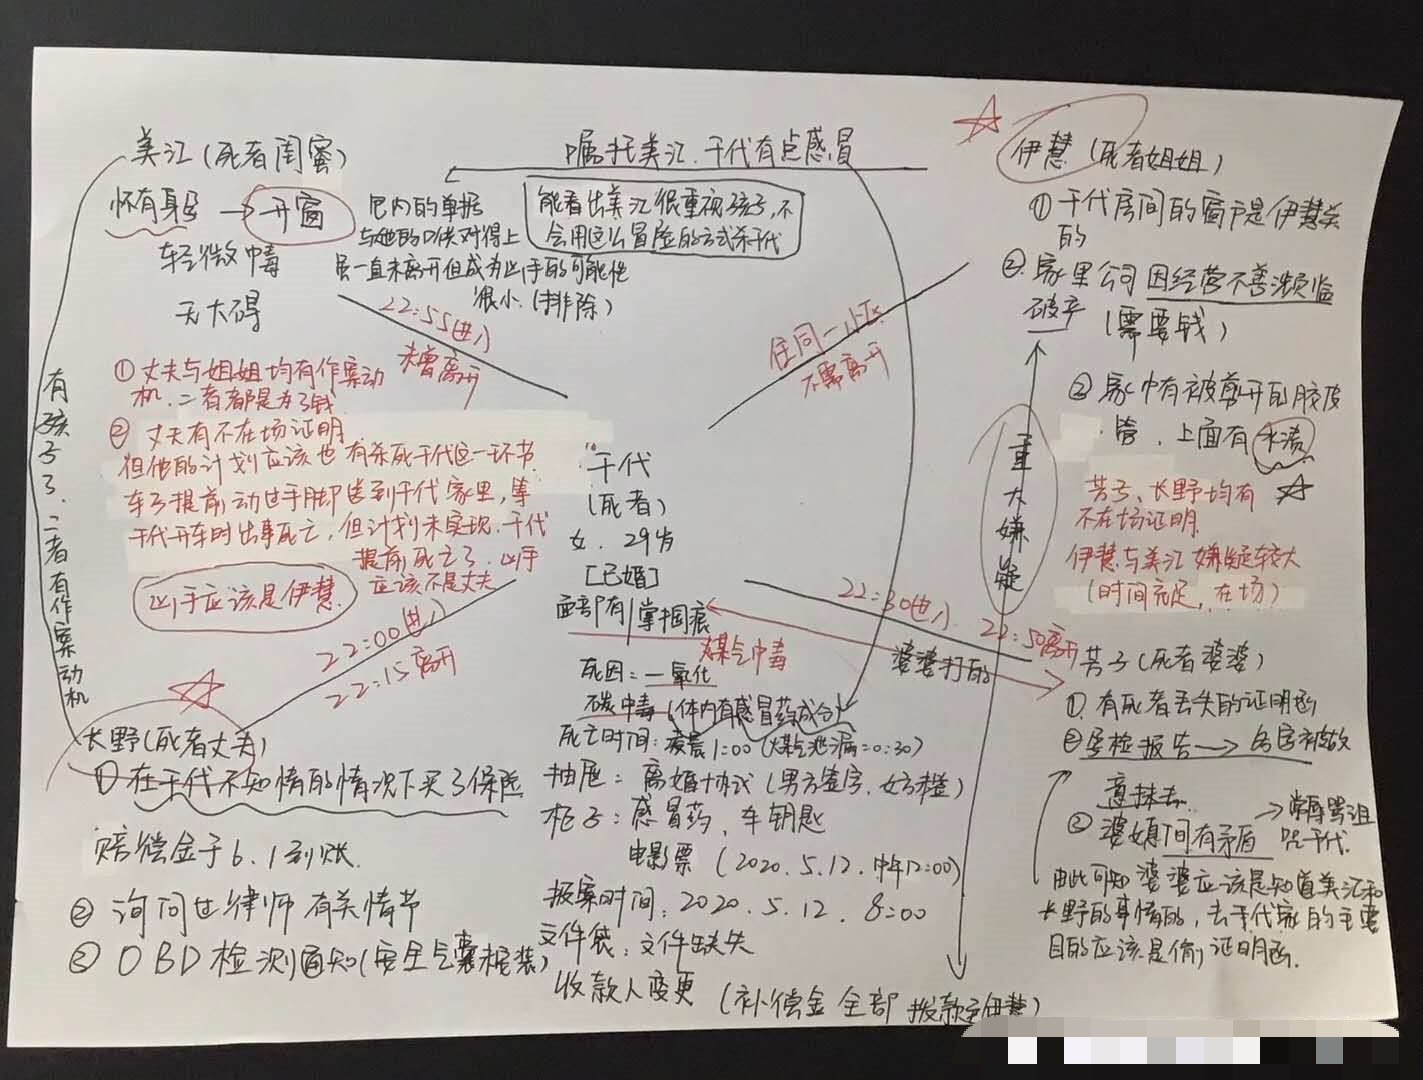 美汇(死者闺蜜)
怀有身孕→开窗
轻微中毒
无大碍
包内的单据
与她的口供对得上
虽一直未离开但成为凶手的可能性
很小.(排除)
嘱托美汇.千代有点感冒
能看出美汇很重视孩子,不
会用这么冒险的方式杀千代
22:55(进)
未曾离开
住同一小区
不需离开
伊慧(死者姐姐)
①千代房间的窗户是伊慧关
的
②.家里公司因经营不善濒临
破产(需要钱)
②家中有被剪开的胶皮
管.上面有水渍
重大嫌疑
芳子、长野均有
不在场证明.
伊慧与美汇嫌疑较大
(时间充足,在场)
有孩子了.二者有作案动机
①丈夫与姐姐均有作案动
机.二者都是为了钱
②丈夫有不在场证明
但他的计划应该也有杀死千代这一环节
车子提前动过手脚送到千代家里,等
千代开车时出事死亡,但计划未实现.千代
提前死亡了.凶手
应该不是丈夫
凶手应该是伊慧.
22:00(进)
22:15离开
千代
(死者)
女.29岁
[已婚]
面部有掌掴痕
煤气中毒
死因:一氧化
碳中毒(体内有感冒药成分)
死亡时间:凌晨1:00(煤气泄漏=0:30)
抽屉:离婚协议(男方签字.女方未签)
柜子:感冒药、车钥匙
电影票(2020.5.12.中午12:00)
报案时间:2020.5.12.8:00
文件袋:文件缺失
收款人变更(补偿金全部拨款至伊慧)
22:30(进).22:50离开
婆婆打的
芳子(死者婆婆)
①.有死者丢失的证明函
②孕检报告→名字被故
意抹去.
③婆媳间有矛盾→常辱骂诅
咒千代.
由此可知婆婆应该是知道美汇和
长野的事情的,去千代家的主要
目的应该是偷证明函.
长野(死者丈夫)
①在千代不知情的情况下买了保险
赔偿金于6.1到账.
②询问过律师有关情节
③OBD检测通知(安全气囊拒装)